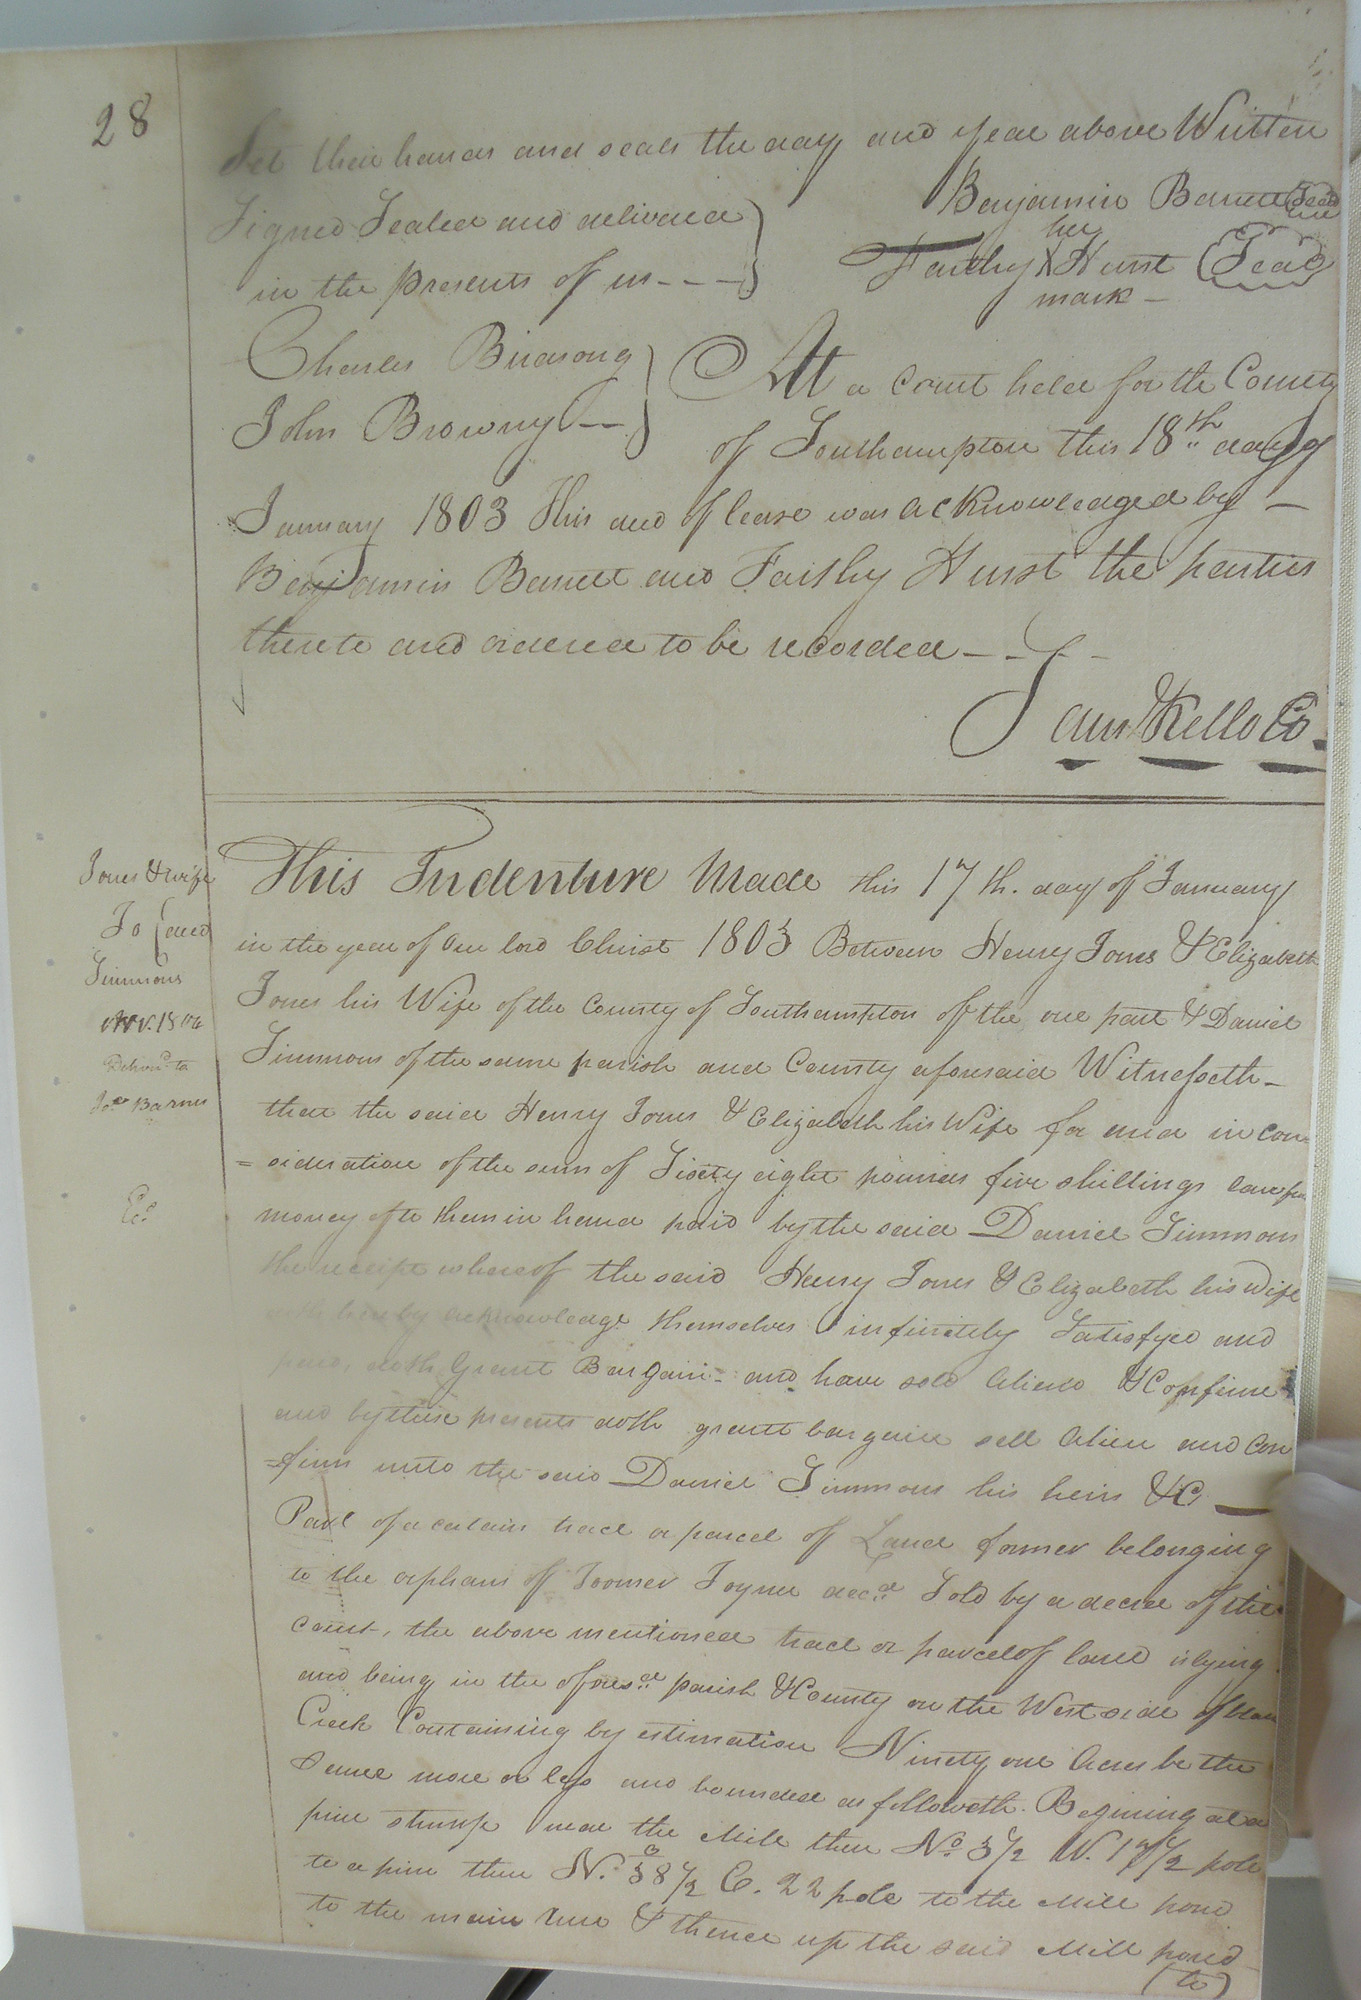 28
Set their hands and seals the day and year above Written
Signed Sealed and delivered
in the presents of us - - -
Benjamin Barrett Seal
her
Faithy X Hurst Seal
mark -
Charles Birdsong
John Browny
At a Court held for the County
of Southampton this 18th day of
January 1803 This and of lease was acknowledged by -
Benjamin Barrett and Faithy Hurst the parties
thereto and ordered to be recorded - - -
Sam Kello CC
Jones & wife
To deed
Simmons
Delivd. to
Barnes
Ed.
This Indenture Made this 17th. day of January
in the year of Our lord Christ 1803 Between Henry Jones & Elizabeth
Jones his Wife of the County of Southampton of the one part & Daniel
Simmons of the same parish and County aforesaid Witnesseth -
that the said Henry Jones & Elizabeth his Wife for and in con=
=sideration of the sum of Sixty eight pounds five shillings lawful
money of to them in hand paid by the said Daniel Simmons
the receipt whereof the said Henry Jones & Elizabeth his wife
doth hereby acknowledge themselves infinitely Satisfyed and
paid, doth Grant Bargain - and have sold Aliend & Confirm
and by these presents doth grant bargain sell Alien and Con
=firm unto the said Daniel Simmons his heirs &C
Part of a certain tract or parcel of Land former belonging
to the orphans of Joyner decd. Sold by a decree of the
Court, the above mentioned tract or parcel of land is lying
and being in the aforesd. parish & County on the West side of
Creek Containing by estimation Ninety one Acres be the
Same more or less and bounded as followeth. Begining at a
pine stump near the Mill then No. 3 1/2 W. 17 1/2 pole
to a pine then N. 38 1/2 E. 22 pole to the Mill pond
to the main run & thence up the said Mill pond
(to)